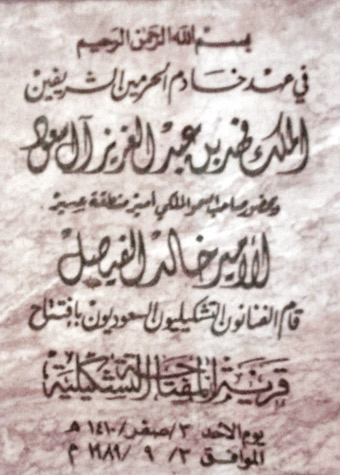 بسم الله الرحمن الرحيم
في عهد خادم الحرمين الشريفين
الملك فهد بن عبد العزيز آل سعود
وبحضور صاحب السمو الملكي أمير منطقة عسير
الأمير خالد الفيصل
قام الفنانون التشكيليون السعوديون بافتتاح
قرية المفتاحة التشكيلية
يوم الأحد ٣/صفر/١٤١٠ هـ
الموافق ٣/ ٩ /١٩٨٩ م